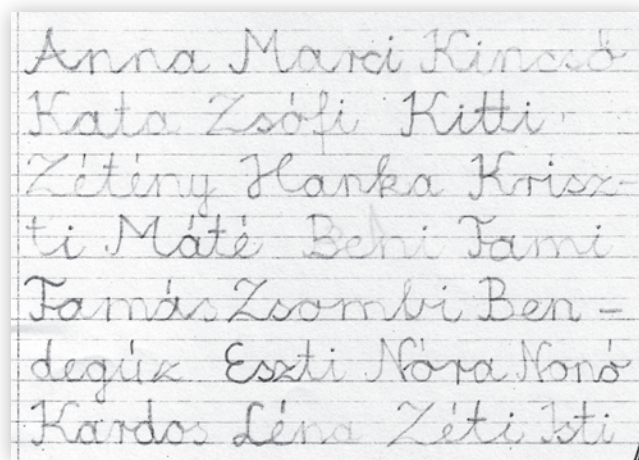 Anna Marci Kincső
Kata Zsófi Kitti
Zétény Hanka Krisz-
ti Máté Behi Tami
Tamás Zsombi Ben-
degúz Eszti Nóra Nonó
Kardos Léna Zéti Isti